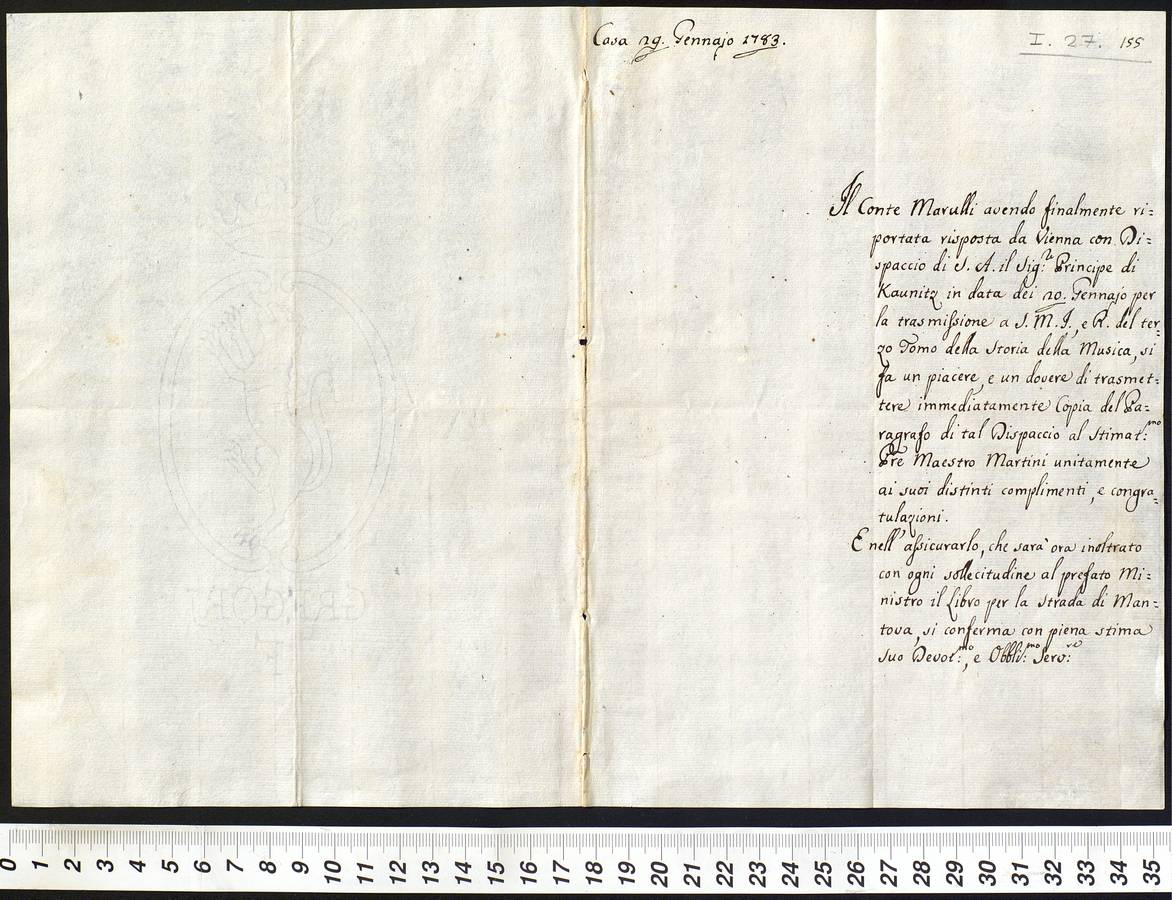 Casa 29. Gennajo 1783.
I. 27. 155
Il Conte Marulli avendo finalmente ri=
portata risposta da Vienna con Di=
spaccio di S. A. il Sig:r Principe di
Kaunitz in data dei 20. Gennajo per
la trasmissione a S. M. I., e R. del ter=
zo Tomo della Storia della Musica, si
fa un piacere, e un dovere di trasmet=
tere immediatamente Copia del Pa=
ragrafo di tal Dispaccio al Stimat:mo
Pre Maestro Martini unitamente
ai suoi distinti complimenti, e congra=
tulazioni.
E nell' assicurarlo, che sarà ora inoltrato
con ogni sollecitudine al prefato Mi=
nistro il Libro per la strada di Man=
tova, si conferma con piena stima
Suo Devot:mo, e Obbli:mo Serv:re
GREGORI
0 1 2 3 4 5 6 7 8 9 10 11 12 13 14 15 16 17 18 19 20 21 22 23 24 25 26 27 28 29 30 31 32 33 34 35